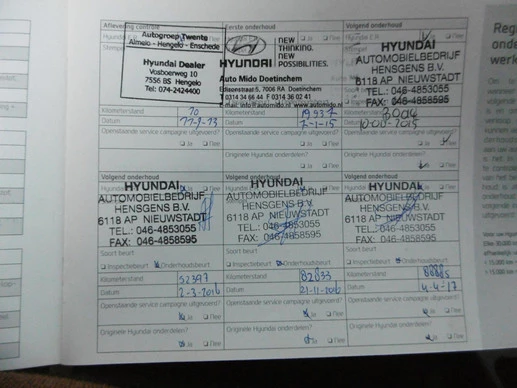 Aflevering controle
Autogroep Twente
Almelo - Hengelo - Enschede
Hyundai Dealer
Vosboerweg 10
7556 BS Hengelo
Tel: 074-2424400
Kilometerstand 70
Datum
Openstaande service campagne uitgevoerd?
Ja Nee
Eerste onderhoud
HYUNDAI
NEW
THINKING.
NEW
POSSIBILITIES.
Auto Mido Doetinchem
Edisonstraat 5, 7006 RA Doetinchem
T 0314 34 66 44 F 0314 36 02 41
E-mail: info@automido.nl www.automido.nl
Kilometerstand 19937
Datum 7-1-15
Openstaande service campagne uitgevoerd?
Ja Nee
Originele Hyundai onderdelen?
Ja Nee
Volgend onderhoud
HYUNDAI
AUTOMOBIELBEDRIJF
HENSGENS B.V.
6118 AP NIEUWSTADT
TEL.: 046-4853055
FAX: 046-4858595
Kilometerstand
Datum
Openstaande service campagne uitgevoerd?
Ja Nee
Originele Hyundai onderdelen?
Nee
Volgend onderhoud
HYUNDAI
AUTOMOBIELBEDRIJF
HENSGENS B.V.
6118 AP NIEUWSTADT
TEL.: 046-4853055
FAX: 046-4858595
Soort beurt
Inspectiebeurt Onderhoudsbeurt
Kilometerstand 52397
Datum 2-3-2016
Openstaande service campagne uitgevoerd?
Ja Nee
Originele Hyundai onderdelen?
Ja Nee
Volgend onderhoud
HYUNDAI
AUTOMOBIELBEDRIJF
HENSGENS B.V.
6118 AP NIEUWSTADT
TEL.: 046-4853055
FAX: 046-4858595
Soort beurt
Inspectiebeurt Onderhoudsbeurt
Kilometerstand 82033
Datum 21-11-2016
Openstaande service campagne uitgevoerd?
Ja Nee
Originele Hyundai onderdelen?
Ja Nee
Volgend onderhoud
HYUNDAI
AUTOMOBIELBEDRIJF
HENSGENS B.V.
6118 AP NIEUWSTADT
TEL.: 046-4853055
FAX: 046-4858595
Soort beurt
Inspectiebeurt Onderhoudsbeurt
Kilometerstand
Datum 4-4-17
Openstaande service campagne uitgevoerd?
Ja Nee
Originele Hyundai onderdelen?
Ja Nee